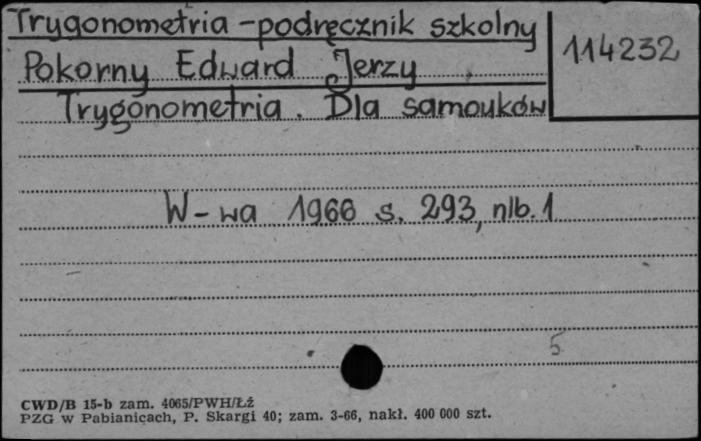 Trygonometria - podręcznik szkolny
114232
Pokorny Edward Jerzy
Trygonometria. Dla samouków
W-wa 1966 s. 293, nlb. 1
5
CWD/B 15-b zam. 4065/PWH/Łź
PZG w Pabianicach, P. Skargi 40; zam. 3-66, nakł. 400 000 szt.